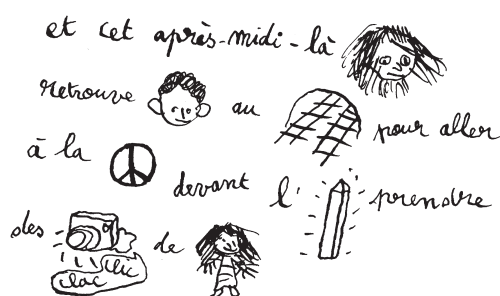 et cet après-midi-là
retrouve au pour aller
à la devant l' prendre
des de
clic
clac